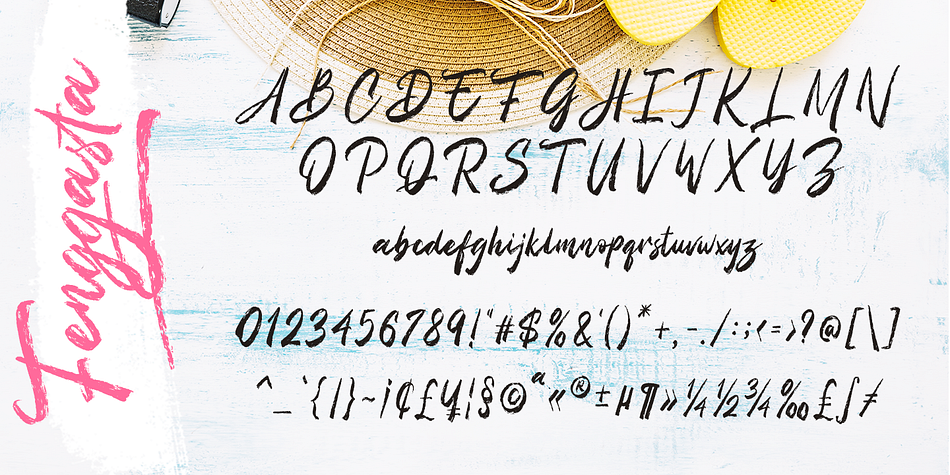 Fenggasta
ABCDEFGHIJKLMN
OPQRSTUVWXYZ
abcdefghijklmnopqrstuvwxyz
0123456789!"#$%&'()*+,-./:;<=>?@[\]
^_`{|}~¡¢£¥¦§©ª«®±µ¶»¼½¾‰₤∫≠